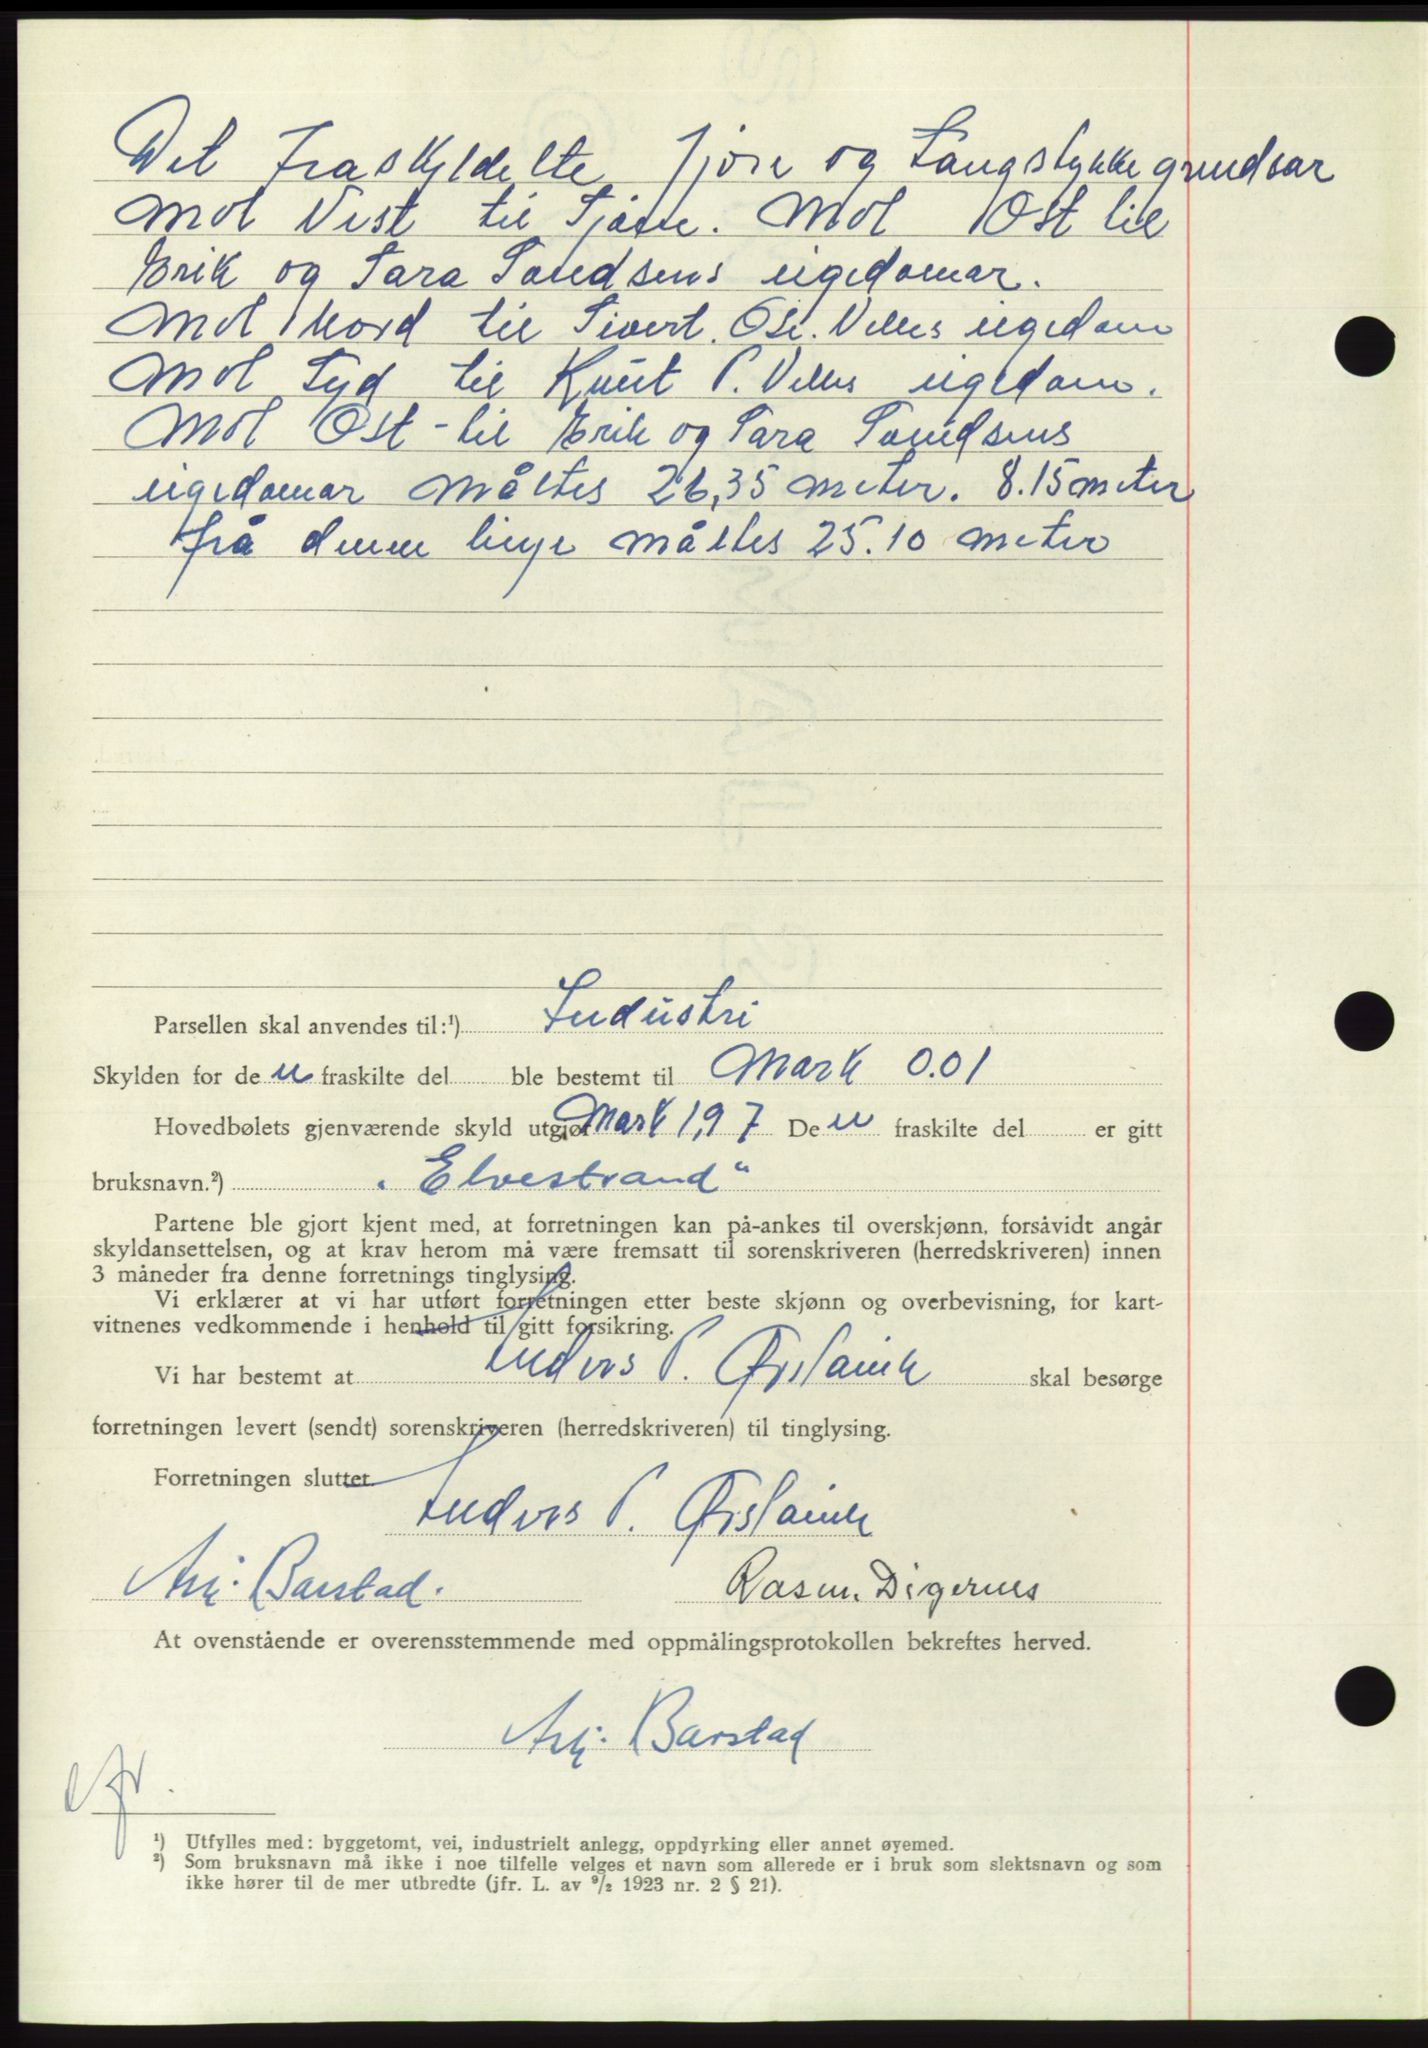 Det fraskyldelte fjøre og Langstykke grundsar
mot Vest til Sjøen. Mot Ost til
Erik og Sara Sandsens eigedomar.
Mot Nord til Sivert. Ose. Velles eigedom
Mot Syd til Knut P. Velles eigedom.
Mot Ost - til Erik og Sara
eigedomar måltes 26,35 meter. 8.15 meter
frå denne linje måltes 25.10 meter
Parsellen skal anvendes til:¹) Industri
Skylden for de n fraskilte del ble bestemt til Mark 0.01
Hovedbølets gjenværende skyld utgjør Mark 1,97 De n fraskilte del er gitt
bruksnavn.²) „Elvestrand“
Partene ble gjort kjent med, at forretningen kan på-ankes til overskjønn, forsåvidt angår
skyldansettelsen, og at krav herom må være fremsatt til sorenskriveren (herredskriveren) innen
3 måneder fra denne forretnings tinglysing.
Vi erklærer at vi har utført forretningen etter beste skjønn og overbevisning, for kart-
vitnenes vedkommende i henhold til gitt forsikring.
Vi har bestemt at Anders P. Ørstavik skal besørge
forretningen levert (sendt) sorenskriveren (herredskriveren) til tinglysing.
Forretningen sluttet.
Anders P. Ørstavik
Barstad. Rasm. Digernes
At ovenstående er overensstemmende med oppmålingsprotokollen bekreftes herved.
Barstad
¹) Utfylles med: byggetomt, vei, industrielt anlegg, oppdyrking eller annet øyemed.
²) Som bruksnavn må ikke i noe tilfelle velges et navn som allerede er i bruk som slektsnavn og som
ikke hører til de mer utbredte (jfr. L. av ⁹/₂ 1923 nr. 2 § 21).